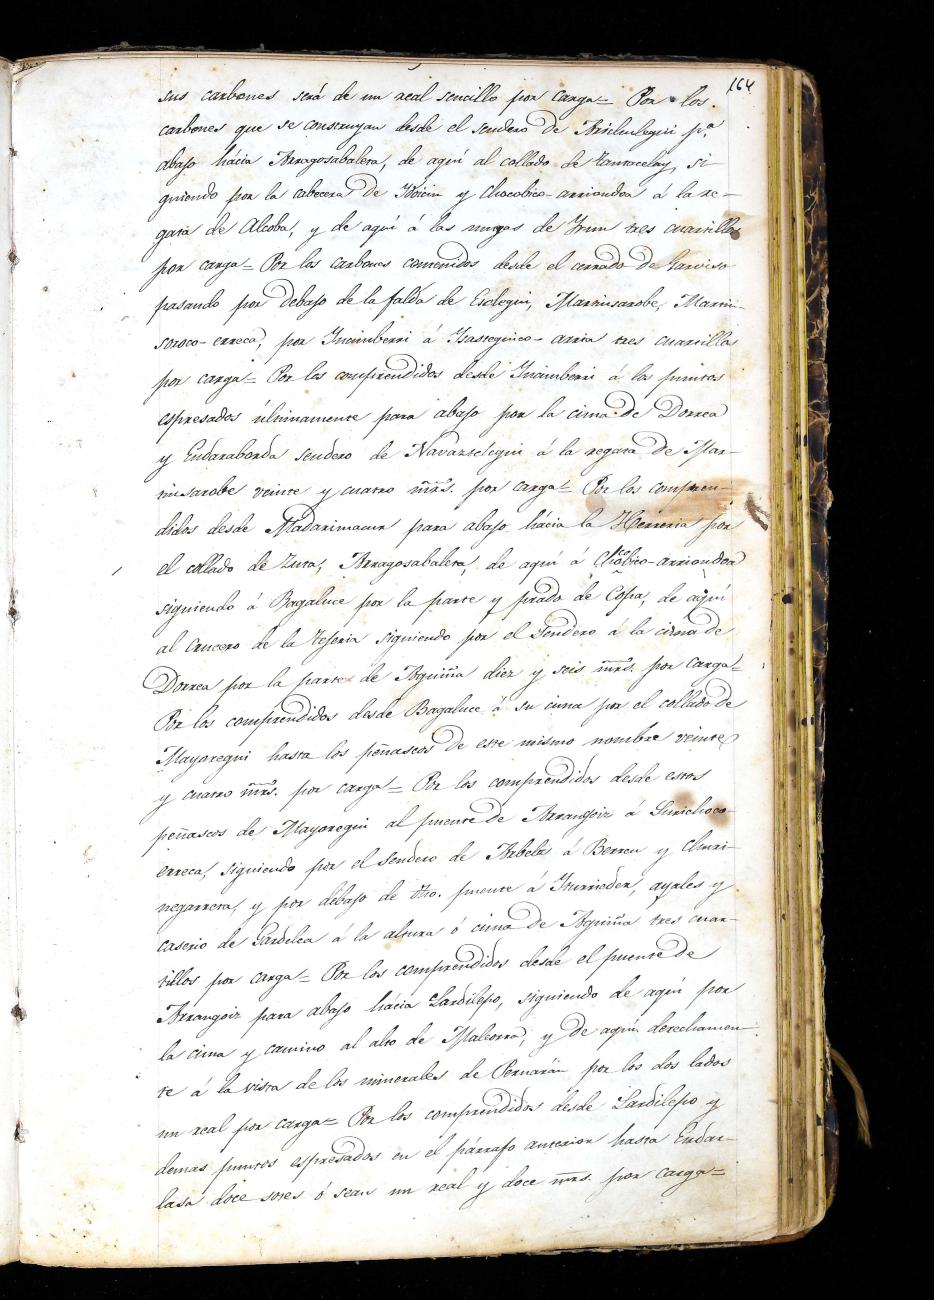 164
sus carbones será de un real sencillo por carga = Por los
carbones que se construyan desde el sendero de Arichulegui pª
abajo hácia Arragosabaleta, de aquí al collado de si-
guiendo por la cabecera de Idoicin y Chocobico-arriondoa á la re-
gata de Alcoba, y de aquí á las mugas de Irun tres cuartillos
por carga = Por los carbones contenidos desde el cerrado de Garviso
pasando por debajo de la falda de Escolegui, Martinsarobe, Martin-
soroco-erreca, por Incinberri á Isasteguico-arria tres cuartillos
por carga = Por los comprendidos desde Incinberri á los puntos
espresados últimamente para abajo por la cima de Dorrea
y Endaraborda sendero de Navaztelegui á la regata de Mar-
tinsarobe veinte y cuatro mrs. por carga = Por los compren-
didos desde Madarimacur para abajo hácia la Herreria por
el collado de Zura, Arragosabaleta, de aquí á Chocobico-arriondoa
siguiendo á Bagaluce por la parte y prado de Cospa, de aquí
al Crucero de la Tegeria siguiendo por el Sendero á la cima de
Dorrea por la parte de Aguiña diez y seis mrs. por carga =
Por los comprendidos desde Bagaluce á su cima por el collado de
Mayoregui hasta los peñascos de este mismo nombre veinte
y cuatro mrs. por carga = Por los comprendidos desde estos
peñascos de Mayoregui al puente de Arrangoiz á Surichoco-
erreca, siguiendo por el sendero de Arbelz á Berren y
negarreta, y por debajo de dho. puente á Iturrieder, ayales y
caserio de Gardelea á la altura ó cima de Aguiña tres cuar-
tillos por carga = Por los comprendidos desde el puente de
Arrangoiz para abajo hácia Sardilepo, siguiendo de aquí por
la cima y camino al alto de Malcorra, y de aquí derechamen-
te á la vista de los minerales de Pernarán por los dos lados
un real por carga = Por los comprendidos desde Sardilepo y
demas puntos espresados en el párrafo anterior hasta Endar-
lasa doce soses ó sean un real y doce mrs. por carga =